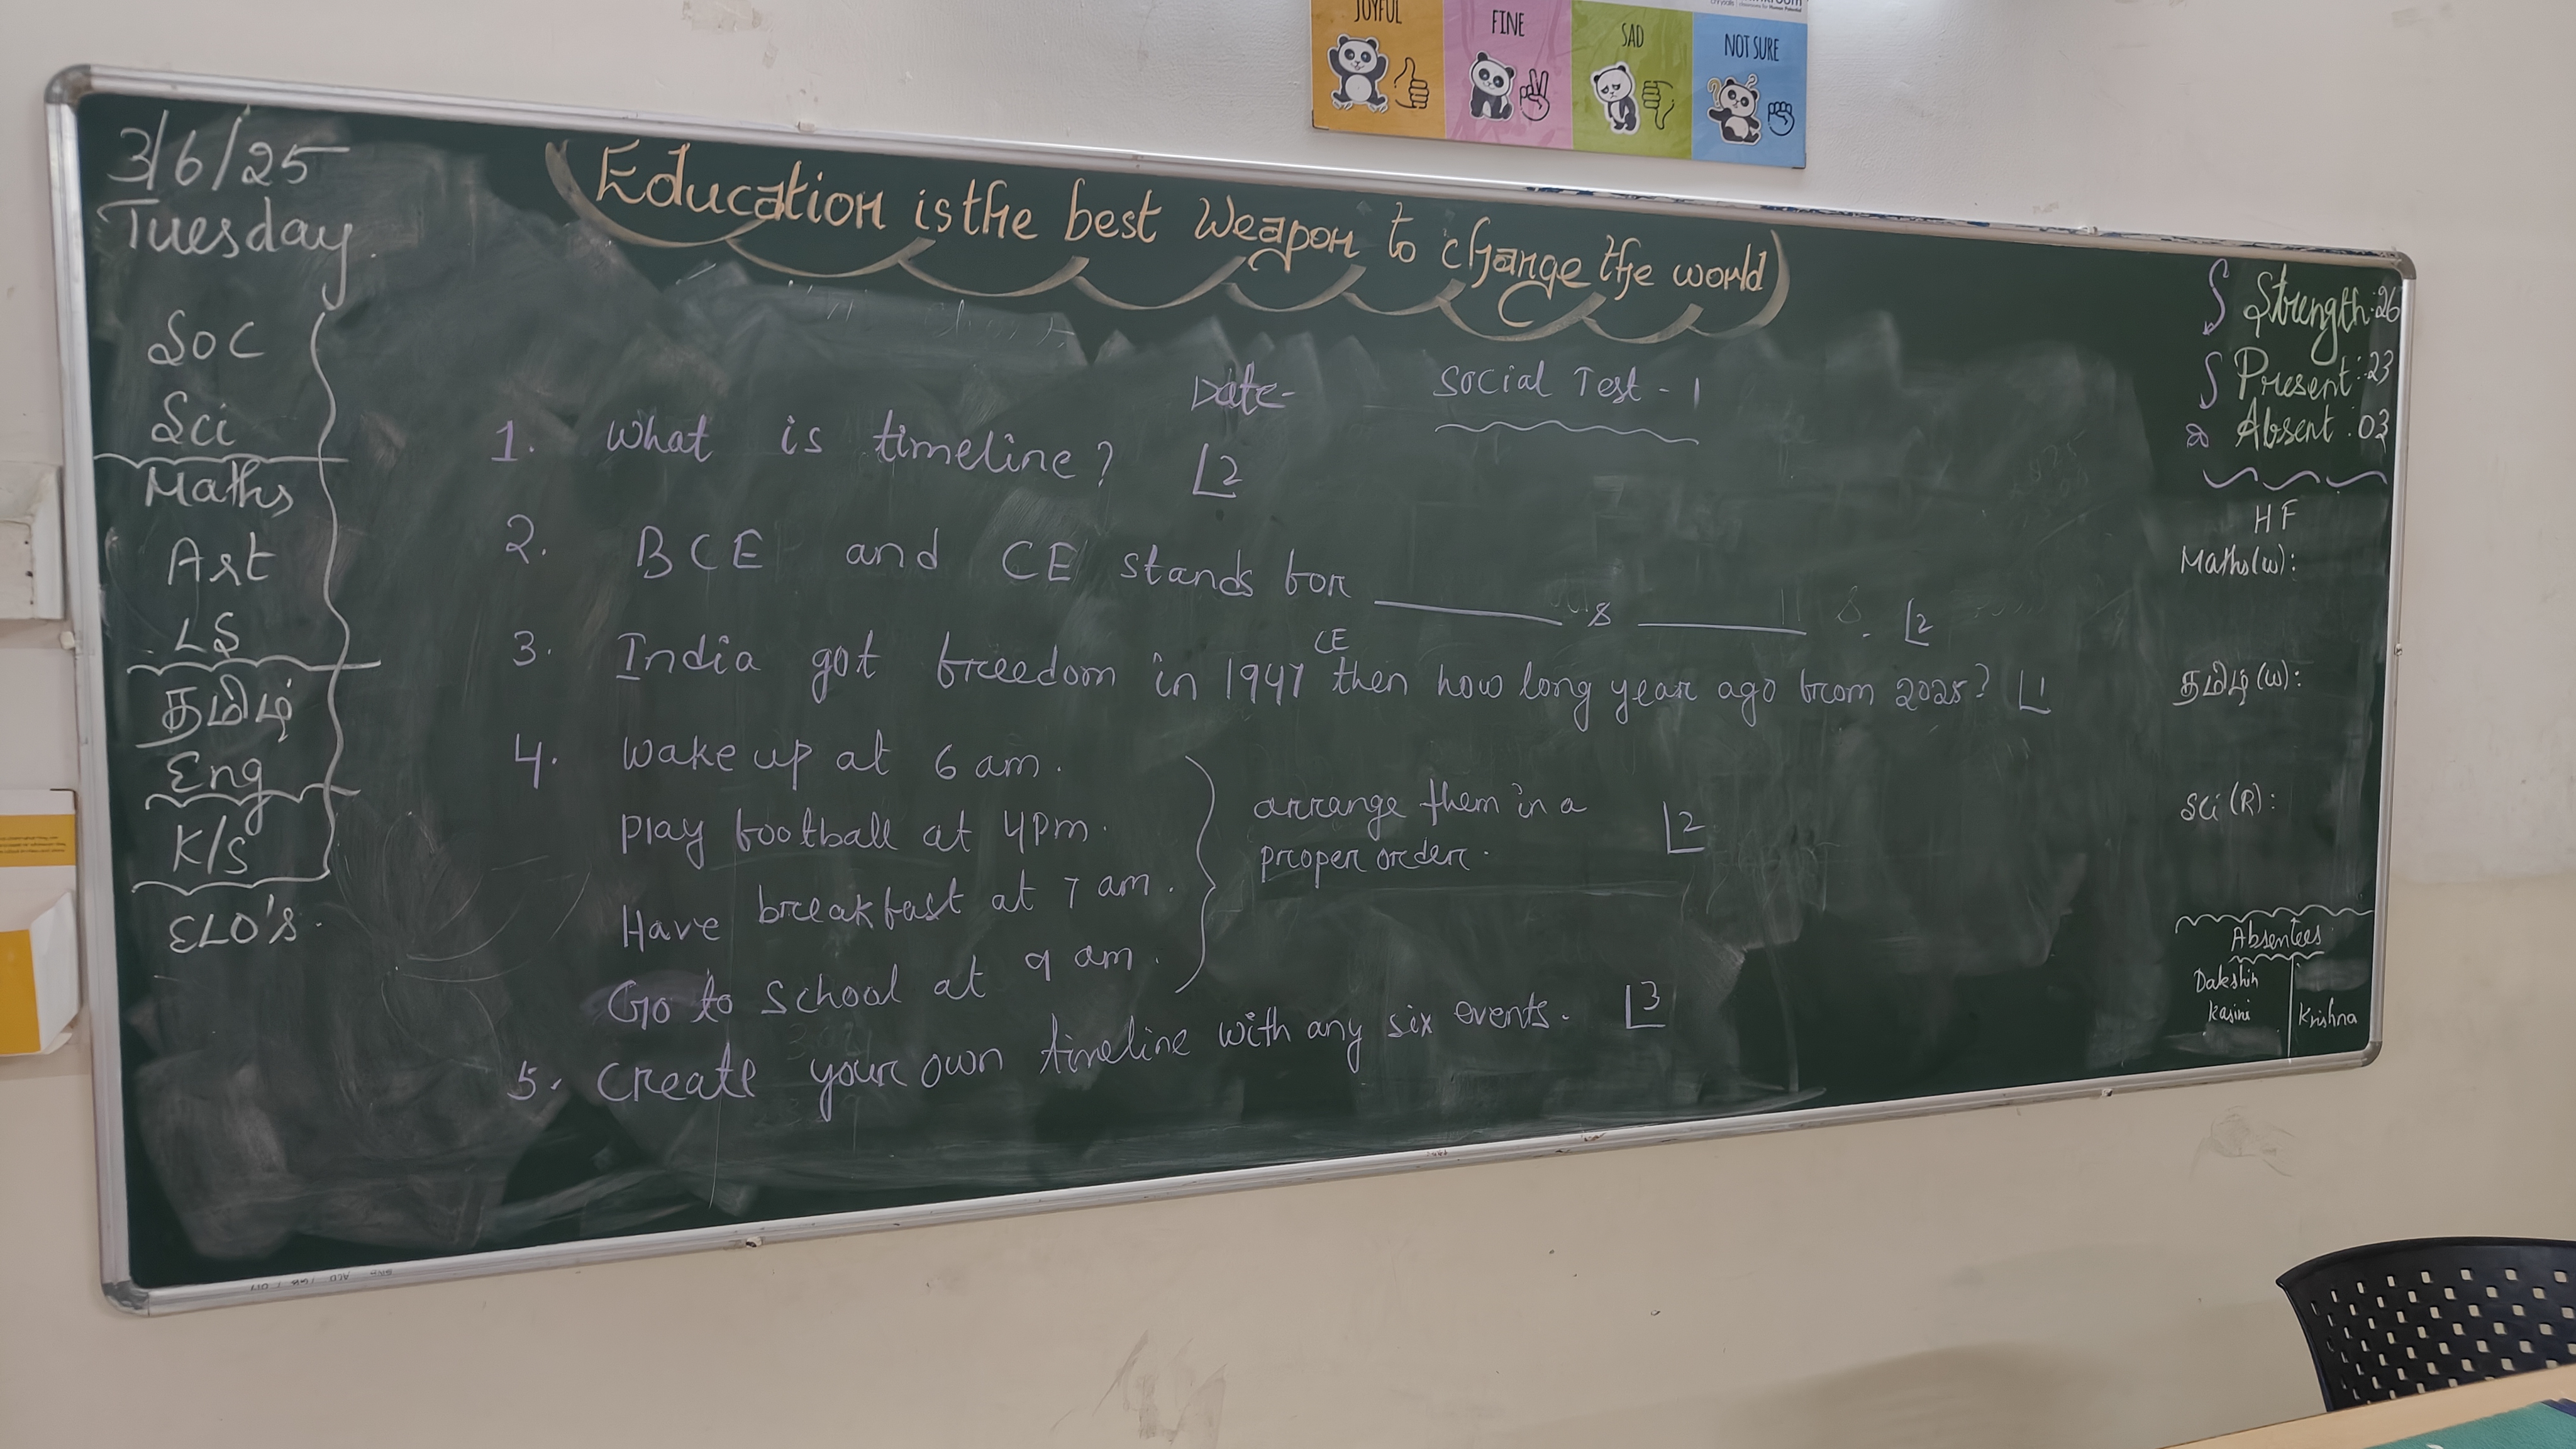 JOYFUL
FINE
SAD
NOT SURE
3/6/25
Tuesday
Soc
Sci
Maths
Art
LS
தமிழ்
Eng
K/S
ELO's.
Education is the best Weapon to change the world
Date-
Social Test - 1
1. What is timeline? 2
2. BCE and CE stands for ________ & ________. 2
3. India got freedom in 1947 CE then how long year ago from 2025? 1
4. Wake up at 6 am.
Play football at 4pm.
Have breakfast at 7 am.
Go to School at 9 am.
arrange them in a
proper order.
2
5. Create your own timeline with any six events. 3
Strength: 26
Present: 23
Absent: 03
HF
Maths(w):
தமிழ்(w):
Sci(R):
Absentees
Dakshin
Kasini
Krishna